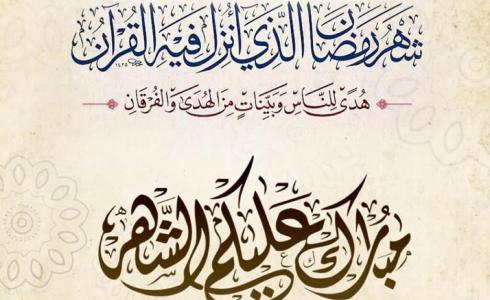 شَهْرُ رَمَضَانَ الَّذِي أُنْزِلَ فِيهِ الْقُرْآنُ
هُدًى لِلنَّاسِ وَبَيِّنَاتٍ مِنَ الْهُدَى وَالْفُرْقَانِ
مُبَارَكٌ عَلَيْكُمُ الشَّهْرُ